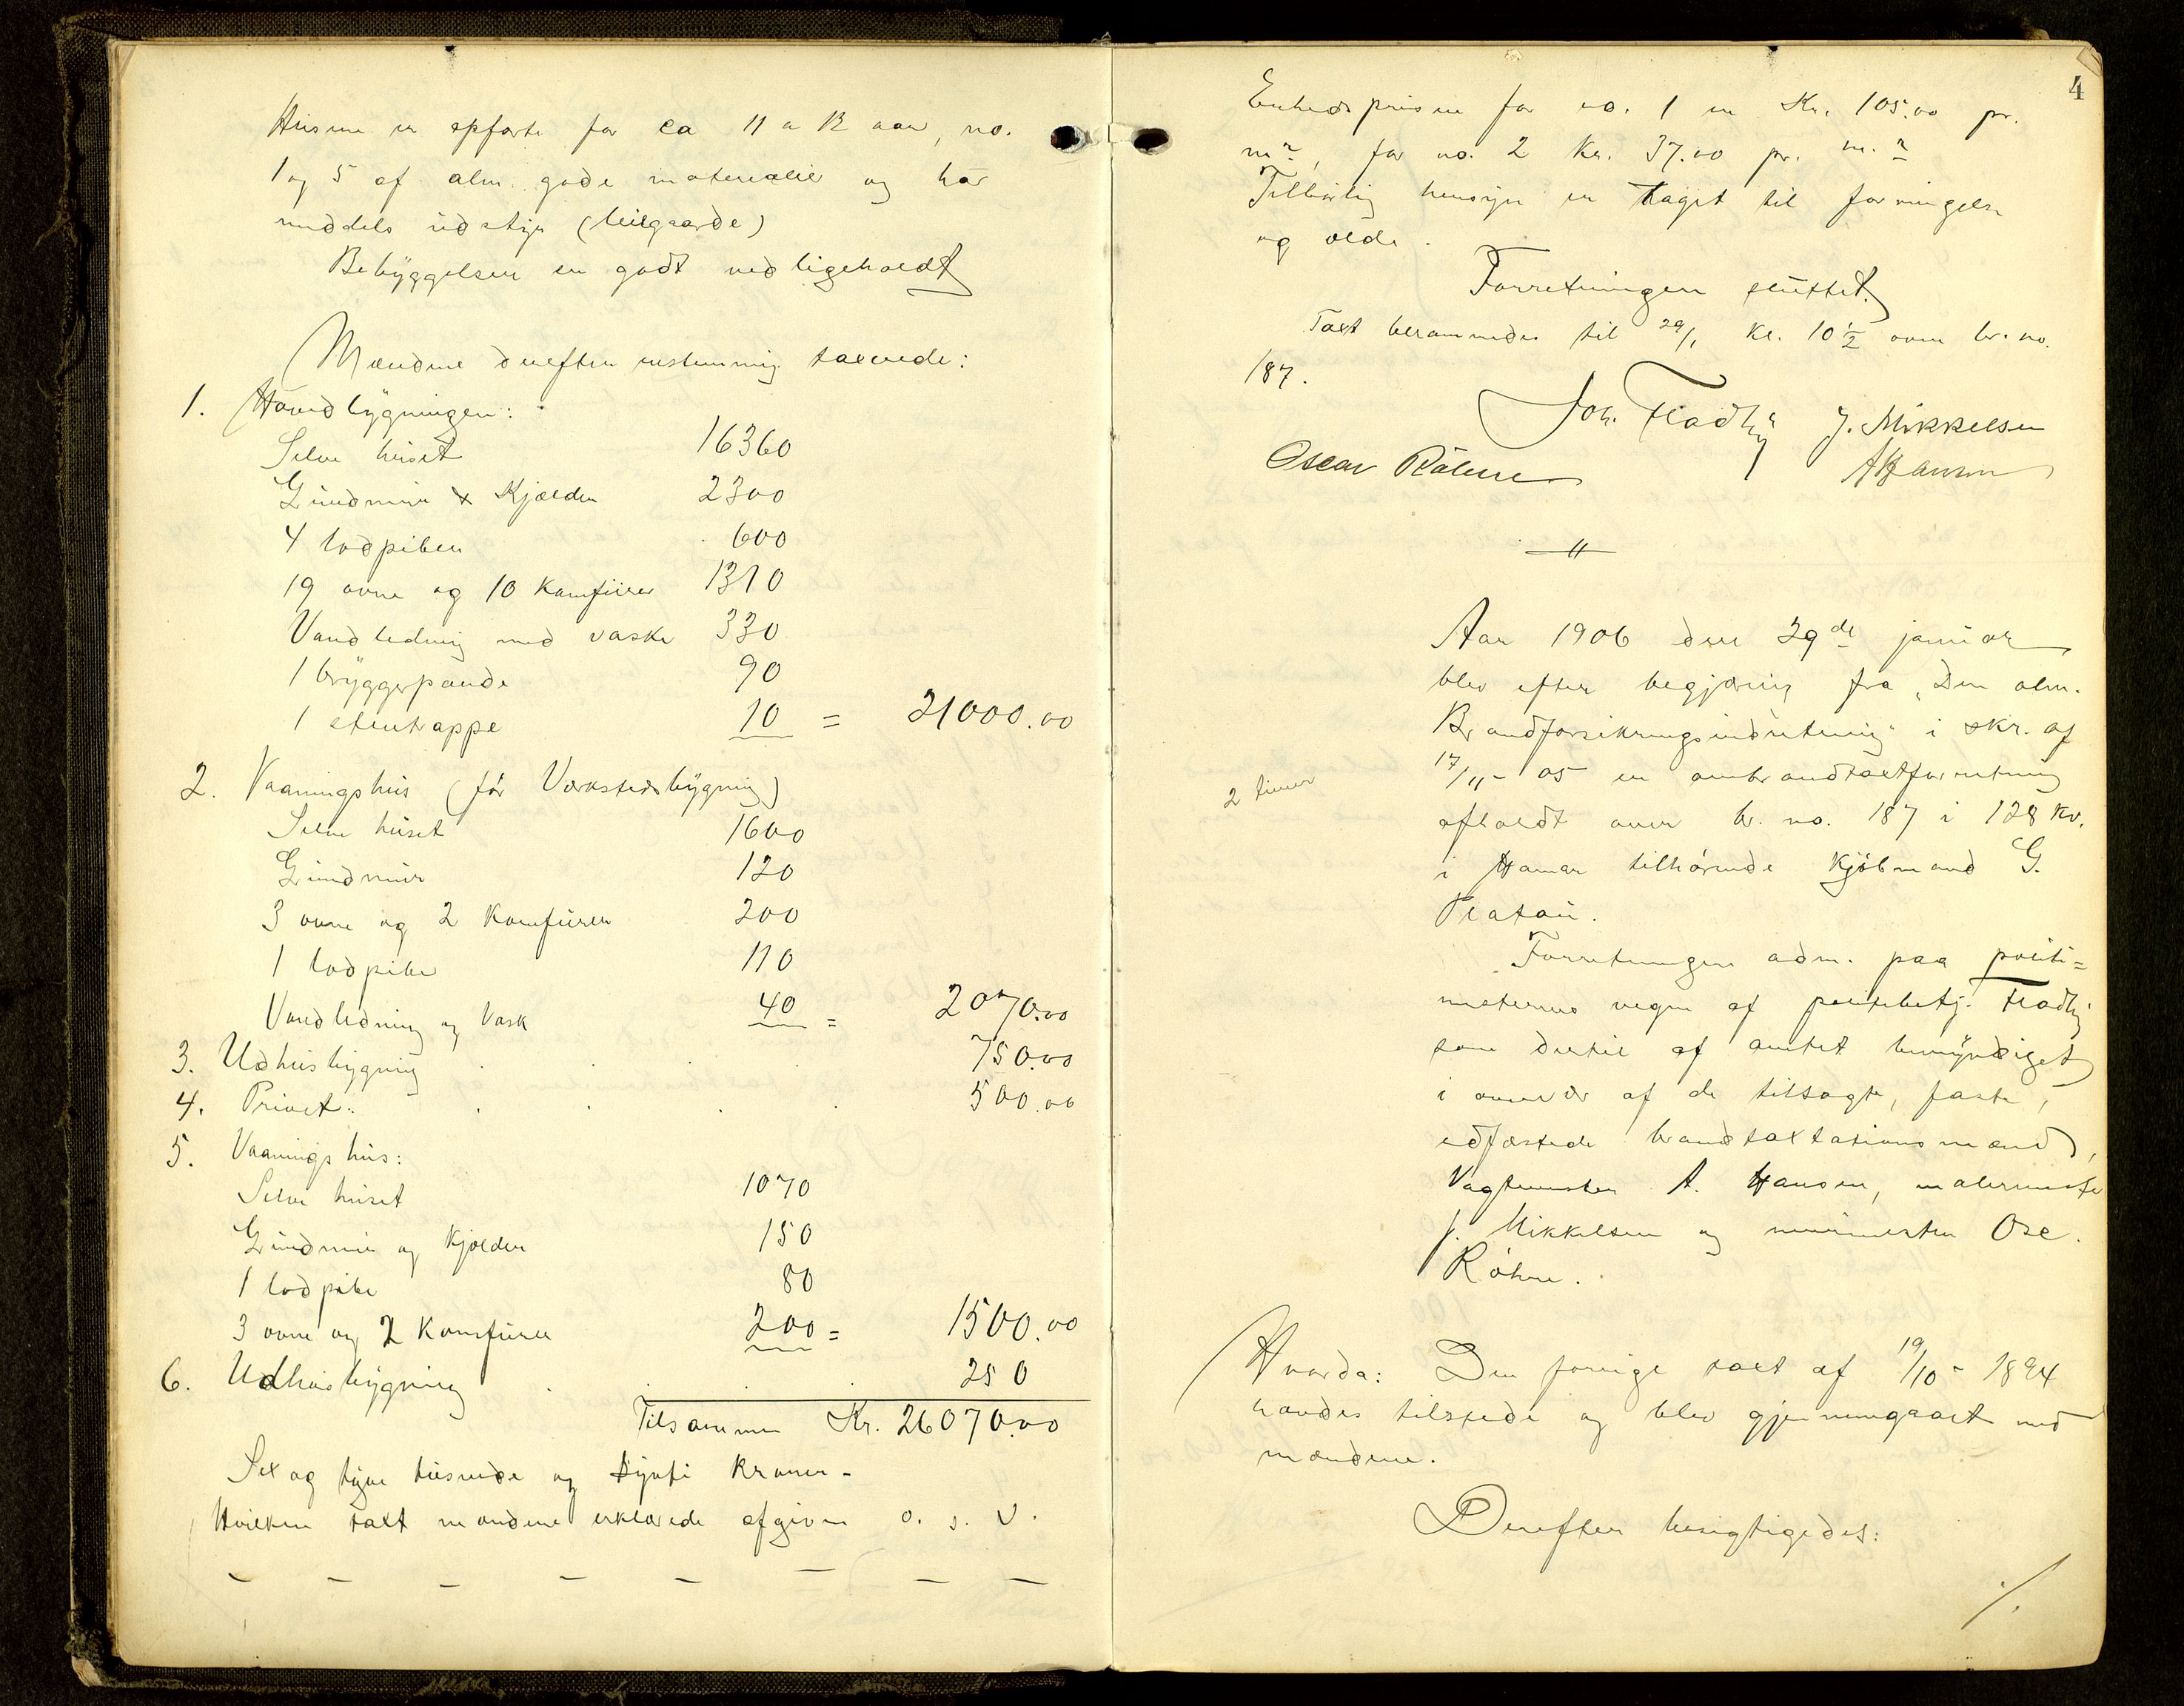 Husene er opførte for ca 11 a 12 aar, no.
1 og 5 af alm. gode materialier og har
middels udstyr (leiegaarde)
Bebyggelsen er godt vedligeholdt
Mændene derefter enstemmig taxerede:
1. Hovedbygningen:
Selve huset 16360
Grundmur & Kjælder 2300
4 lodpiber 600
19 ovne og 10 Komfürer 1310
Vandledning med vaske 330
1 bryggepande 90
1 stentrappe 10 = 21000.00
2. Vaaningshus (før Værkstedsbygning)
Selve huset 1600
Grundmur 120
3 ovne og 2 Komfürer 200
1 lodpibe 110
Vandledning og Vask 40 = 2070.00
3. Udhusbygning 750.00
4. Privet: 500.00
5. Vaaningshus:
Selve huset 1070
Grundmur og Kjælder 150
1 lodpibe 80
3 ovne og 2 Komfürer 200 = 1500.00
6. Udhusbygning 250
Tilsammen Kr. 26070.00
Sex og tyve tusende og sytti Kroner -
Hvilken taxt mændene erklærede afgiven o. s. v.
4
Enhedsprisene for no. 1 er Kr. 105.00 pr.
m², for no. 2 Kr. 37.00 pr. m.²
Tilbørlig hensyn er taget til forringelse
og ælde.
Forretningen sluttet.
Taxt berammedes til 29/1 Kl. 10 1/2 over br. no.
187.
Joh. Fladby J. Mikkelsen
Oscar Röhne A Hansen
Aar 1906 den 29de januar
blev efter begjæring fra "Den alm.
Brandforsikringsindretning" i skr. af
17/11 - 05 en ombrandtaxtforretning
2 timer
afholdt over br. no. 187 i 128 Kv.
i Hamar tilhørende Kjøbmand G.
Platou.
Forretningen adm. paa politi=
mesterens vegne af politibetj. Fladby
som dertil af amtet bemyndiget
i overvær af de tilsagte, faste,
edfæstede brandtaxtationsmænd,
Vagtmester A. Hansen, malermester
J. Mikkelsen og murmester Osc.
Röhne.
Hvorda: Den forrige taxt af 19/10 - 1894
havdes tilstede og blev gjennemgaaet med
mændene.
Derefter besigtigedes:
./.